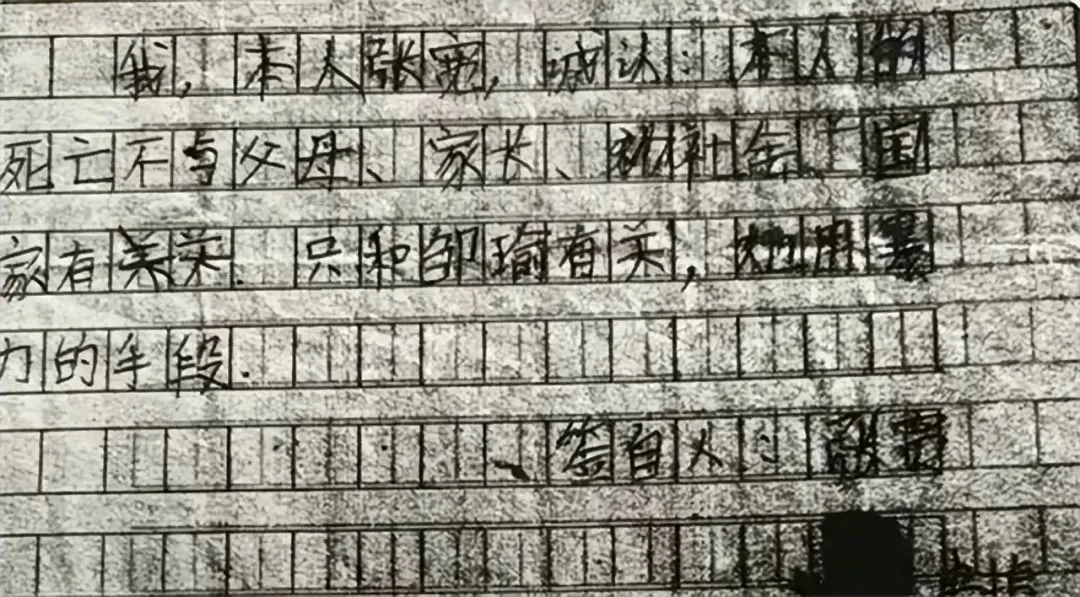 我,本人张宽,诚达:本人的
死亡不与父母、家长、社会、国
家有关 只和邹瑜有关,她用暴
力的手段.
签自人:张宽